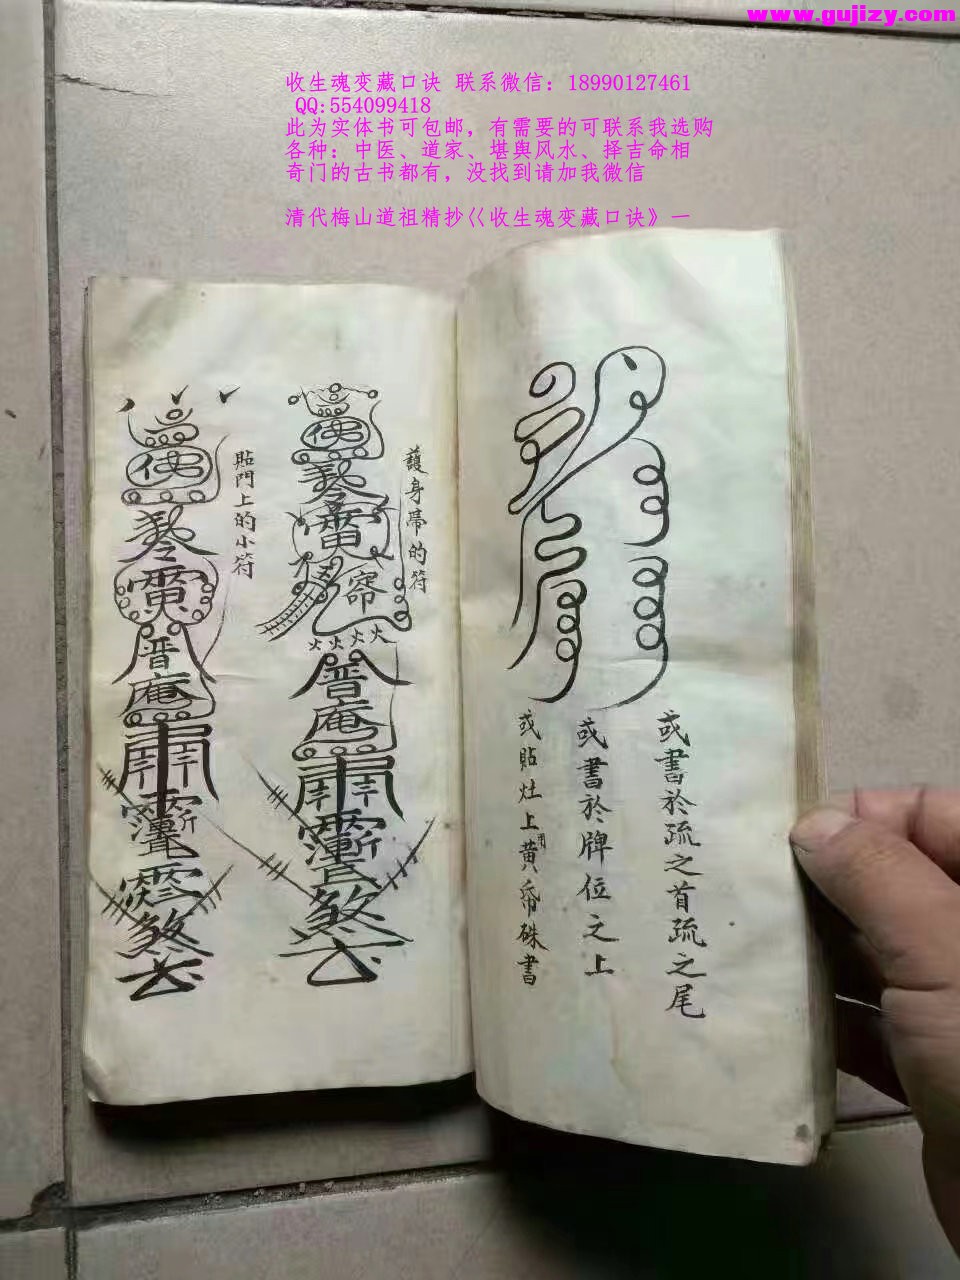 www.gujizy.com
收生魂变藏口诀 联系微信：18990127461
QQ:554099418
此为实体书可包邮，有需要的可联系我选购
各种：中医、道家、堪舆风水、择吉命相
奇门的古书都有，没找到请加我微信
清代梅山道祖精抄《《收生魂变藏口诀》一
或書於疏之首疏之尾
或書於牌位之上
或貼灶上用黄帋硃書
護身帶的符
佛
雷
火火火火
普庵
煞
貼門上的小符
佛
普庵
煞